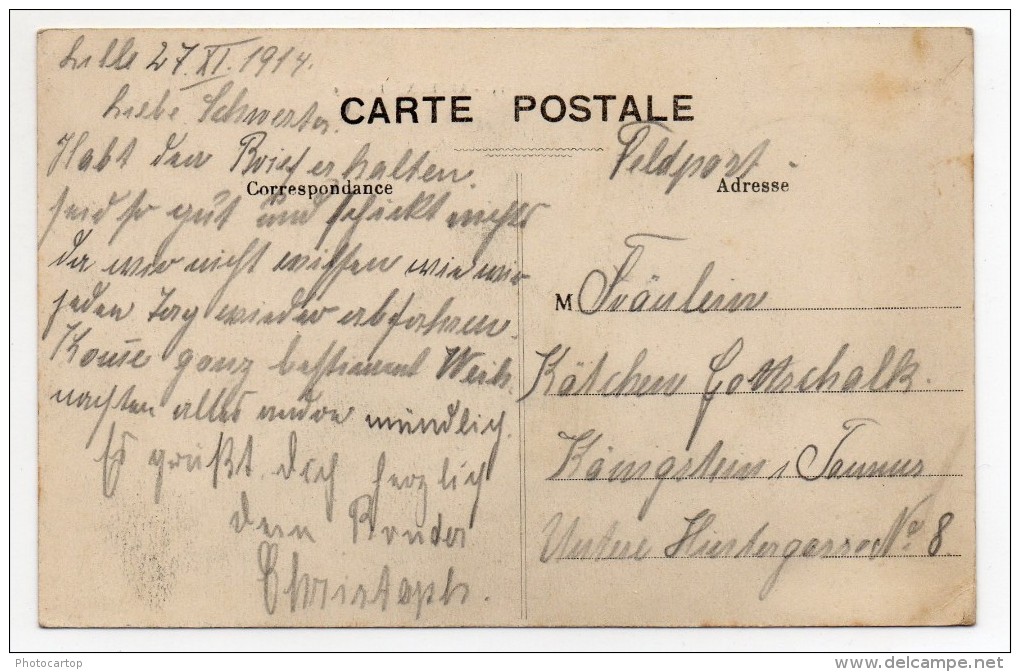 Lille 27.XI.1914.
Liebe Schwester.
CARTE POSTALE
Habt den Brief erhalten.
Feldpost.
Correspondance
Adresse
seid so gut und schickt nichts
da wir nicht wissen wie wir
jeden Tag wieder abfahren.
M Fräulein
Kome ganz bestimmt Weih-
nachten alles andre mündlich.
Kätchen Gottschalk.
Es grüßt dich herzlich
Königstein i Taunus
dein Bruder
Untere Hintergasse No 8.
Christoph.
Photocartop
www.delcampe.net